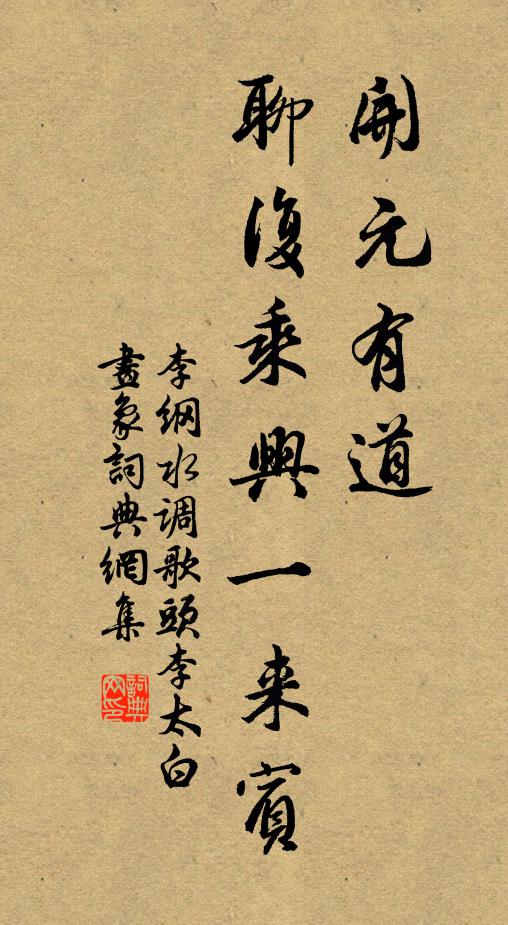 開元有道
聊復乘興一来賓
李綱水调歌頭李太白
畫象詞典網集
詞典